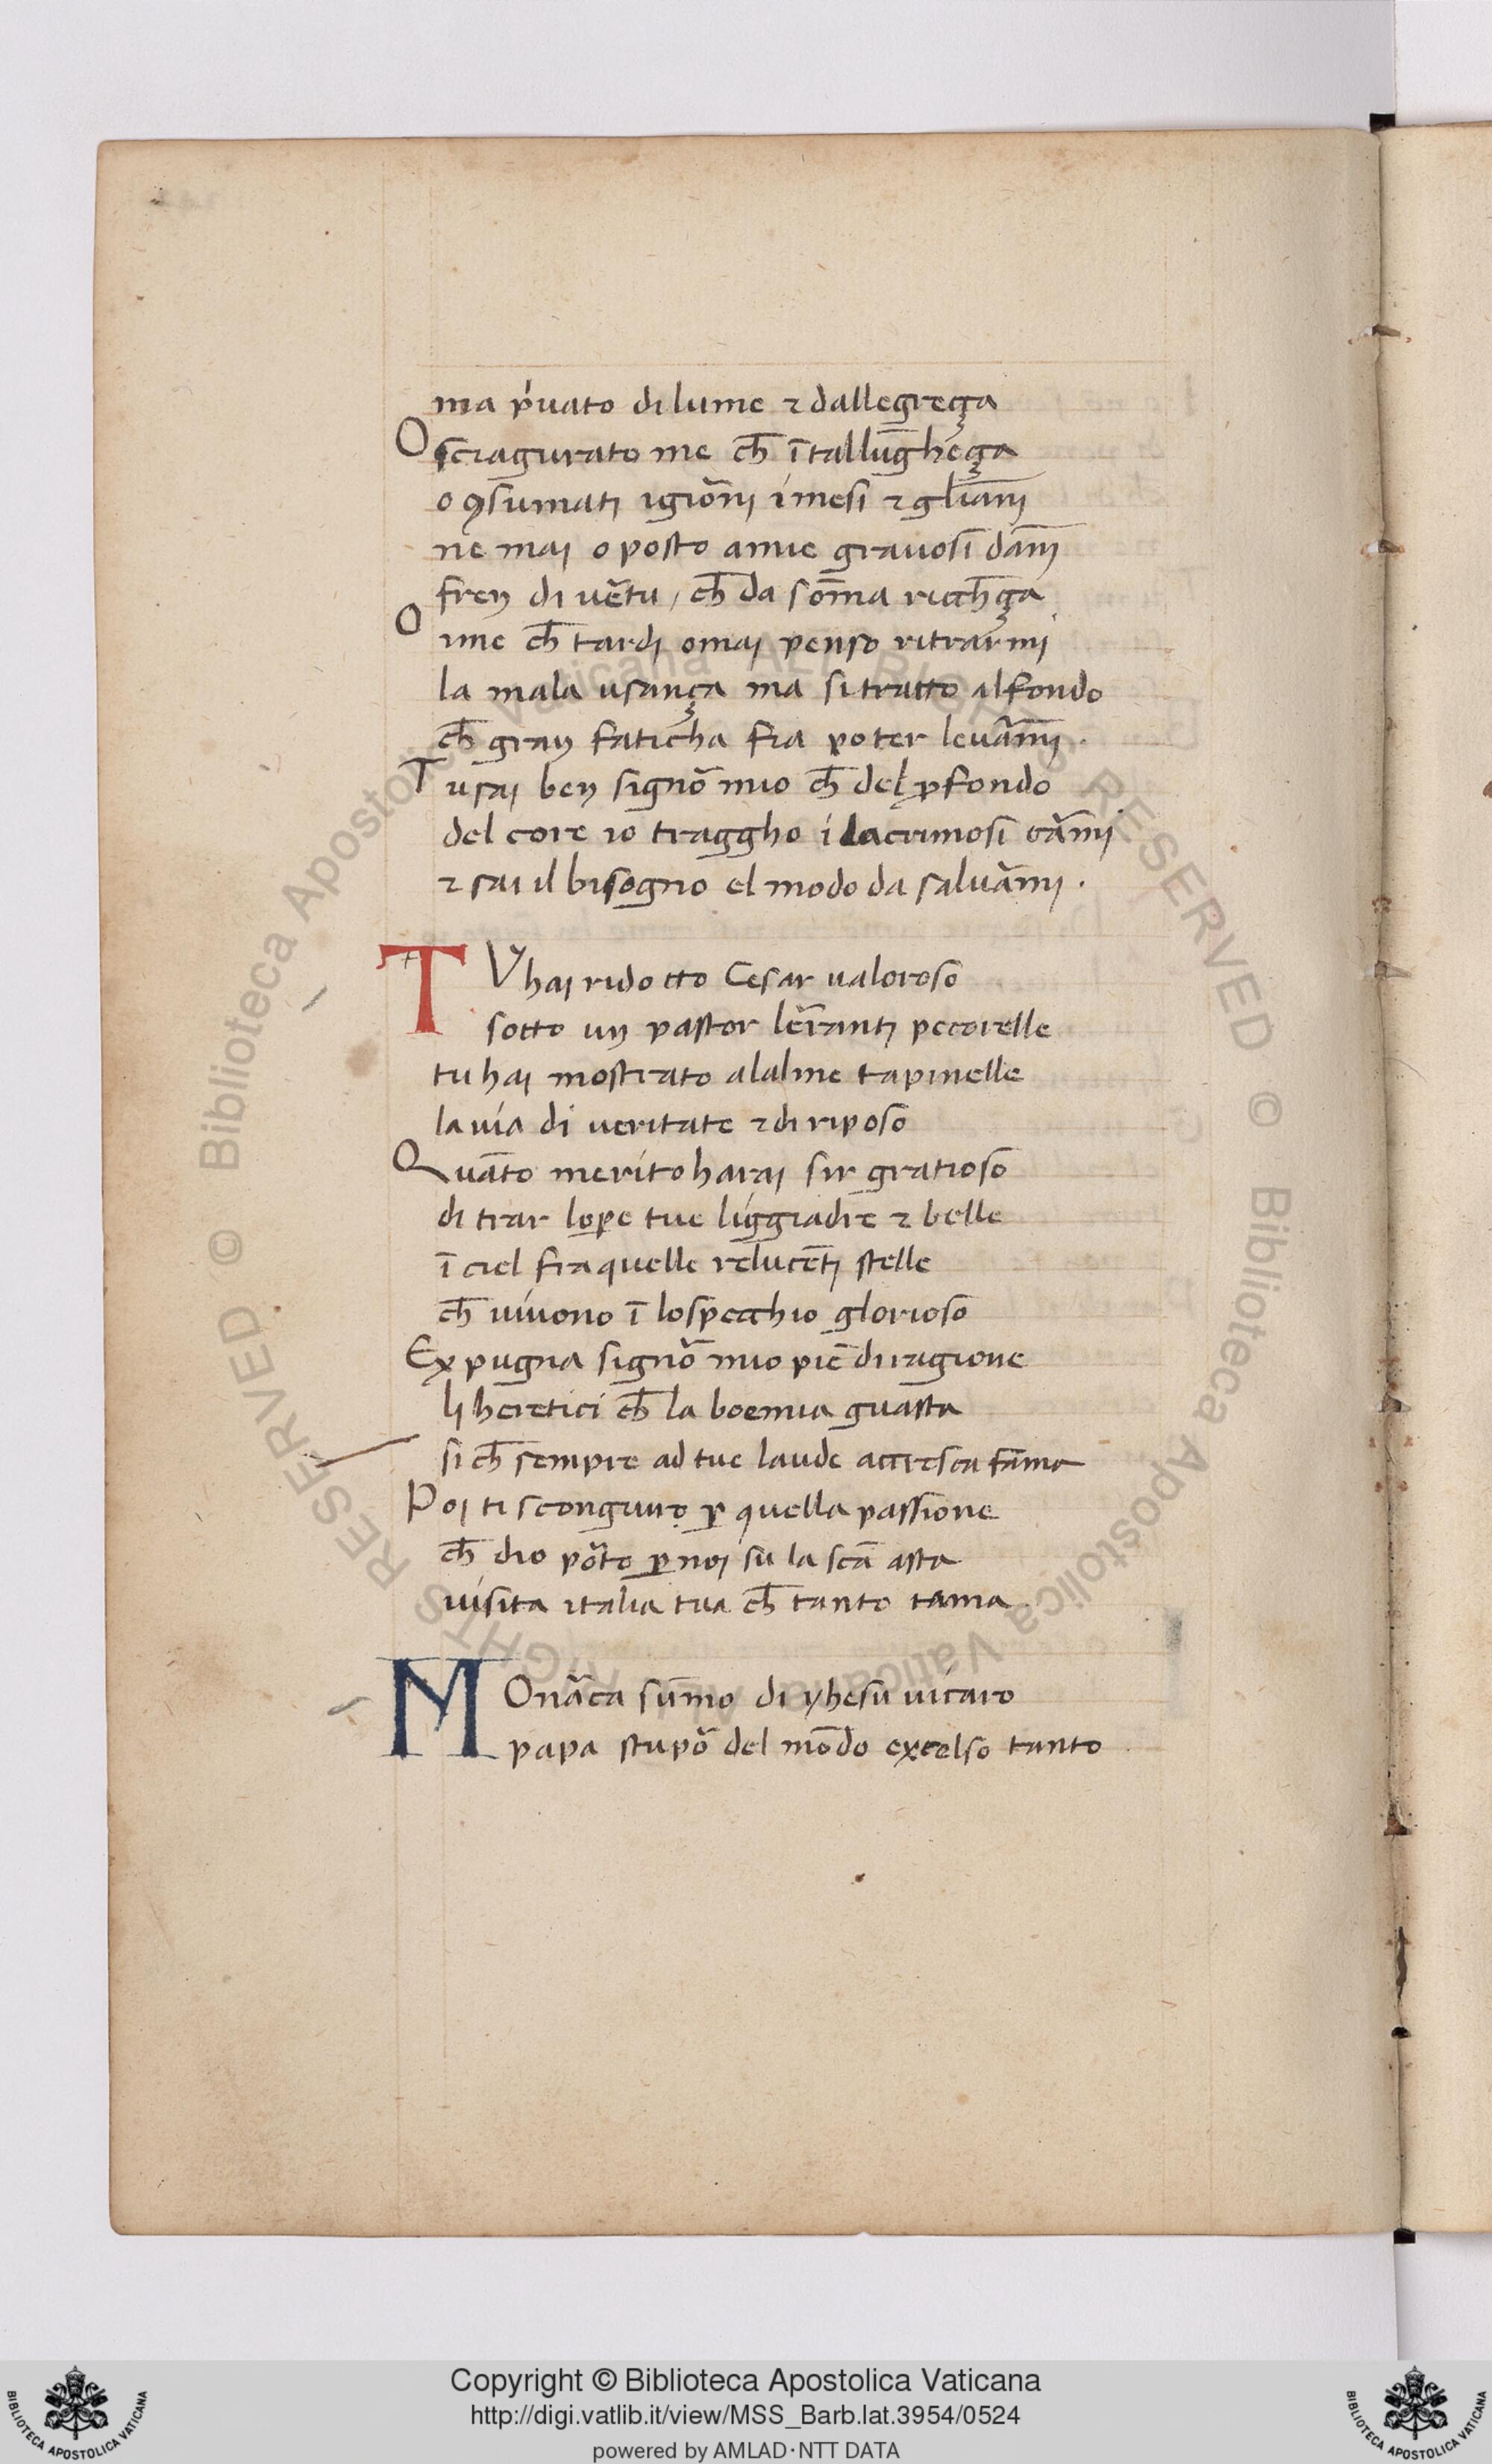 ma p̓uato di lume ⁊ dallegreça
O scragurato me ch̄ ī tallūgheça
o ꝯsumati igiōrni i mesi ⁊ gliāni
ne mai o posto amie grauosi dāni
fren di uētu, ch̄ da sōma riccheça
O ime ch̄ tardi omai penso ritrarmi
la mala usança ma si tratto al fondo
ch̄ gran faticha fia poter leuārmi.
Tu sai ben signō mio ch̄ del ꝓfondo
del core io traggho i lacrimosi cārmi
⁊ sai il bisogno el modo da saluārmi.
TV hai ridotto Cesar ualoroso
sotto un pastor lerranti pecorelle
tu hai mostrato alalme tapinelle
la uia di ueritate ⁊ di riposo
Quāto merito harai sir gratioso
di trar loꝑe tue liggiadre ⁊ belle
ī ciel fra quelle relucēti stelle
ch̄ uiuono ī lo specchio glorioso
Expugna signō mio piē di ragione
li heretici ch̄ la boemia guasta
si ch̄ sempre ad tue laude accresca fama
Poi ti scongiuro ꝑ quella passione
ch̄ dio pōrto ꝑ noi su la scā asta
uisita italia tua ch̄ tanto tama
MOnāca sūmo di yhesu uicaro
papa stupō del mōdo excelso tanto
Copyright © Biblioteca Apostolica Vaticana
http://digi.vatlib.it/view/MSS_Barb.lat.3954/0524
powered by AMLAD·NTT DATA
BIBLIOTECA APOSTOLICA VATICANA
BIBLIOTECA APOSTOLICA VATICANA
© Biblioteca Apostolica Vaticana ALL RIGHTS RESERVED
© Biblioteca Apostolica Vaticana ALL RIGHTS RESERVED